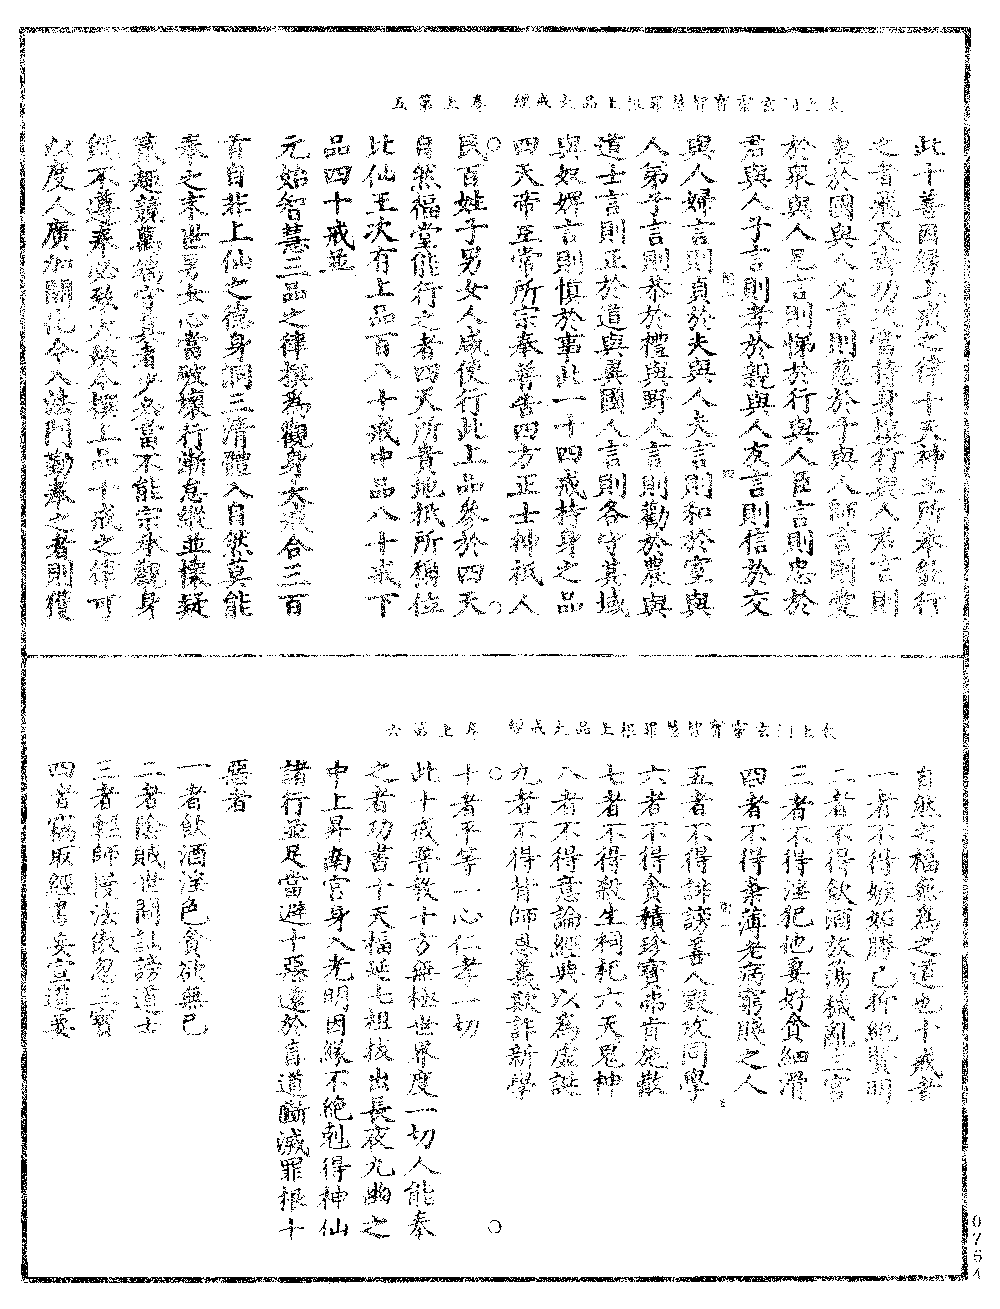 太上洞玄靈寶智慧罪根上品大戒經　卷上第五
此十善因緣上戒之律十天神王所奉能行
之者飛天齊功次當持身慎行與人君言則
惠於國與人父言則慈於子與人師言則愛
於眾與人兄言則悌於行與人臣言則忠於
君與人子言則孝於親與人友言則信於交
與人婦言則貞於夫與人夫言則和於室與
人弟子言則恭於禮與野人言則勸於農與
道士言則正於道與異國人言則各守其域
與奴婢言則慎於事此一十四戒持身之品
四天帝王常所宗奉普告四方正士神祇人
民百姓子男女人咸使行此上品參於四天
自然福堂能行之者四天所貴地祇所稱位
比仙王次有上品百八十戒中品八十戒下
品四十戒並
元始智慧三品之律撰為觀身大戒合三百
首自非上仙之德身洞三清體入自然莫能
奉之末世男女心當破壞行漸怠縱並懷疑
貳趣競萬端守真者少多當不能宗承觀身
經不遵奉必致大殃今撰上品十戒之律可
以度人廣加開化令入法門勤奉之者則獲
太上洞玄靈寶智慧罪根上品大戒經　卷上第六
自然之福無為之道也十戒者
一者不得嫉妬勝己抑絕賢明
二者不得飲酒放蕩穢亂三宮
三者不得淫犯他妻好貪細滑
四者不得棄薄老病窮賤之人
五者不得誹謗善人毀攻同學
六者不得貪積珍寶弗肯施散
七者不得殺生祠祀六天鬼神
八者不得意論經典以為虛誕
九者不得背師恩義欺詐新學
十者平等一心仁孝一切
此十戒普教十方無極世界度一切人能奉
之者功書十天福延七祖拔出長夜九幽之
中上昇南宮身入光明因緣不絕剋得神仙
諸行並足當避十惡遠於盲道斷滅罪根十
惡者
一者飲酒淫色貪欲無已
二者陰賊世間訕謗道士
三者輕師慢法傲忽三寶
四者竊取經書妄宣道要
0754